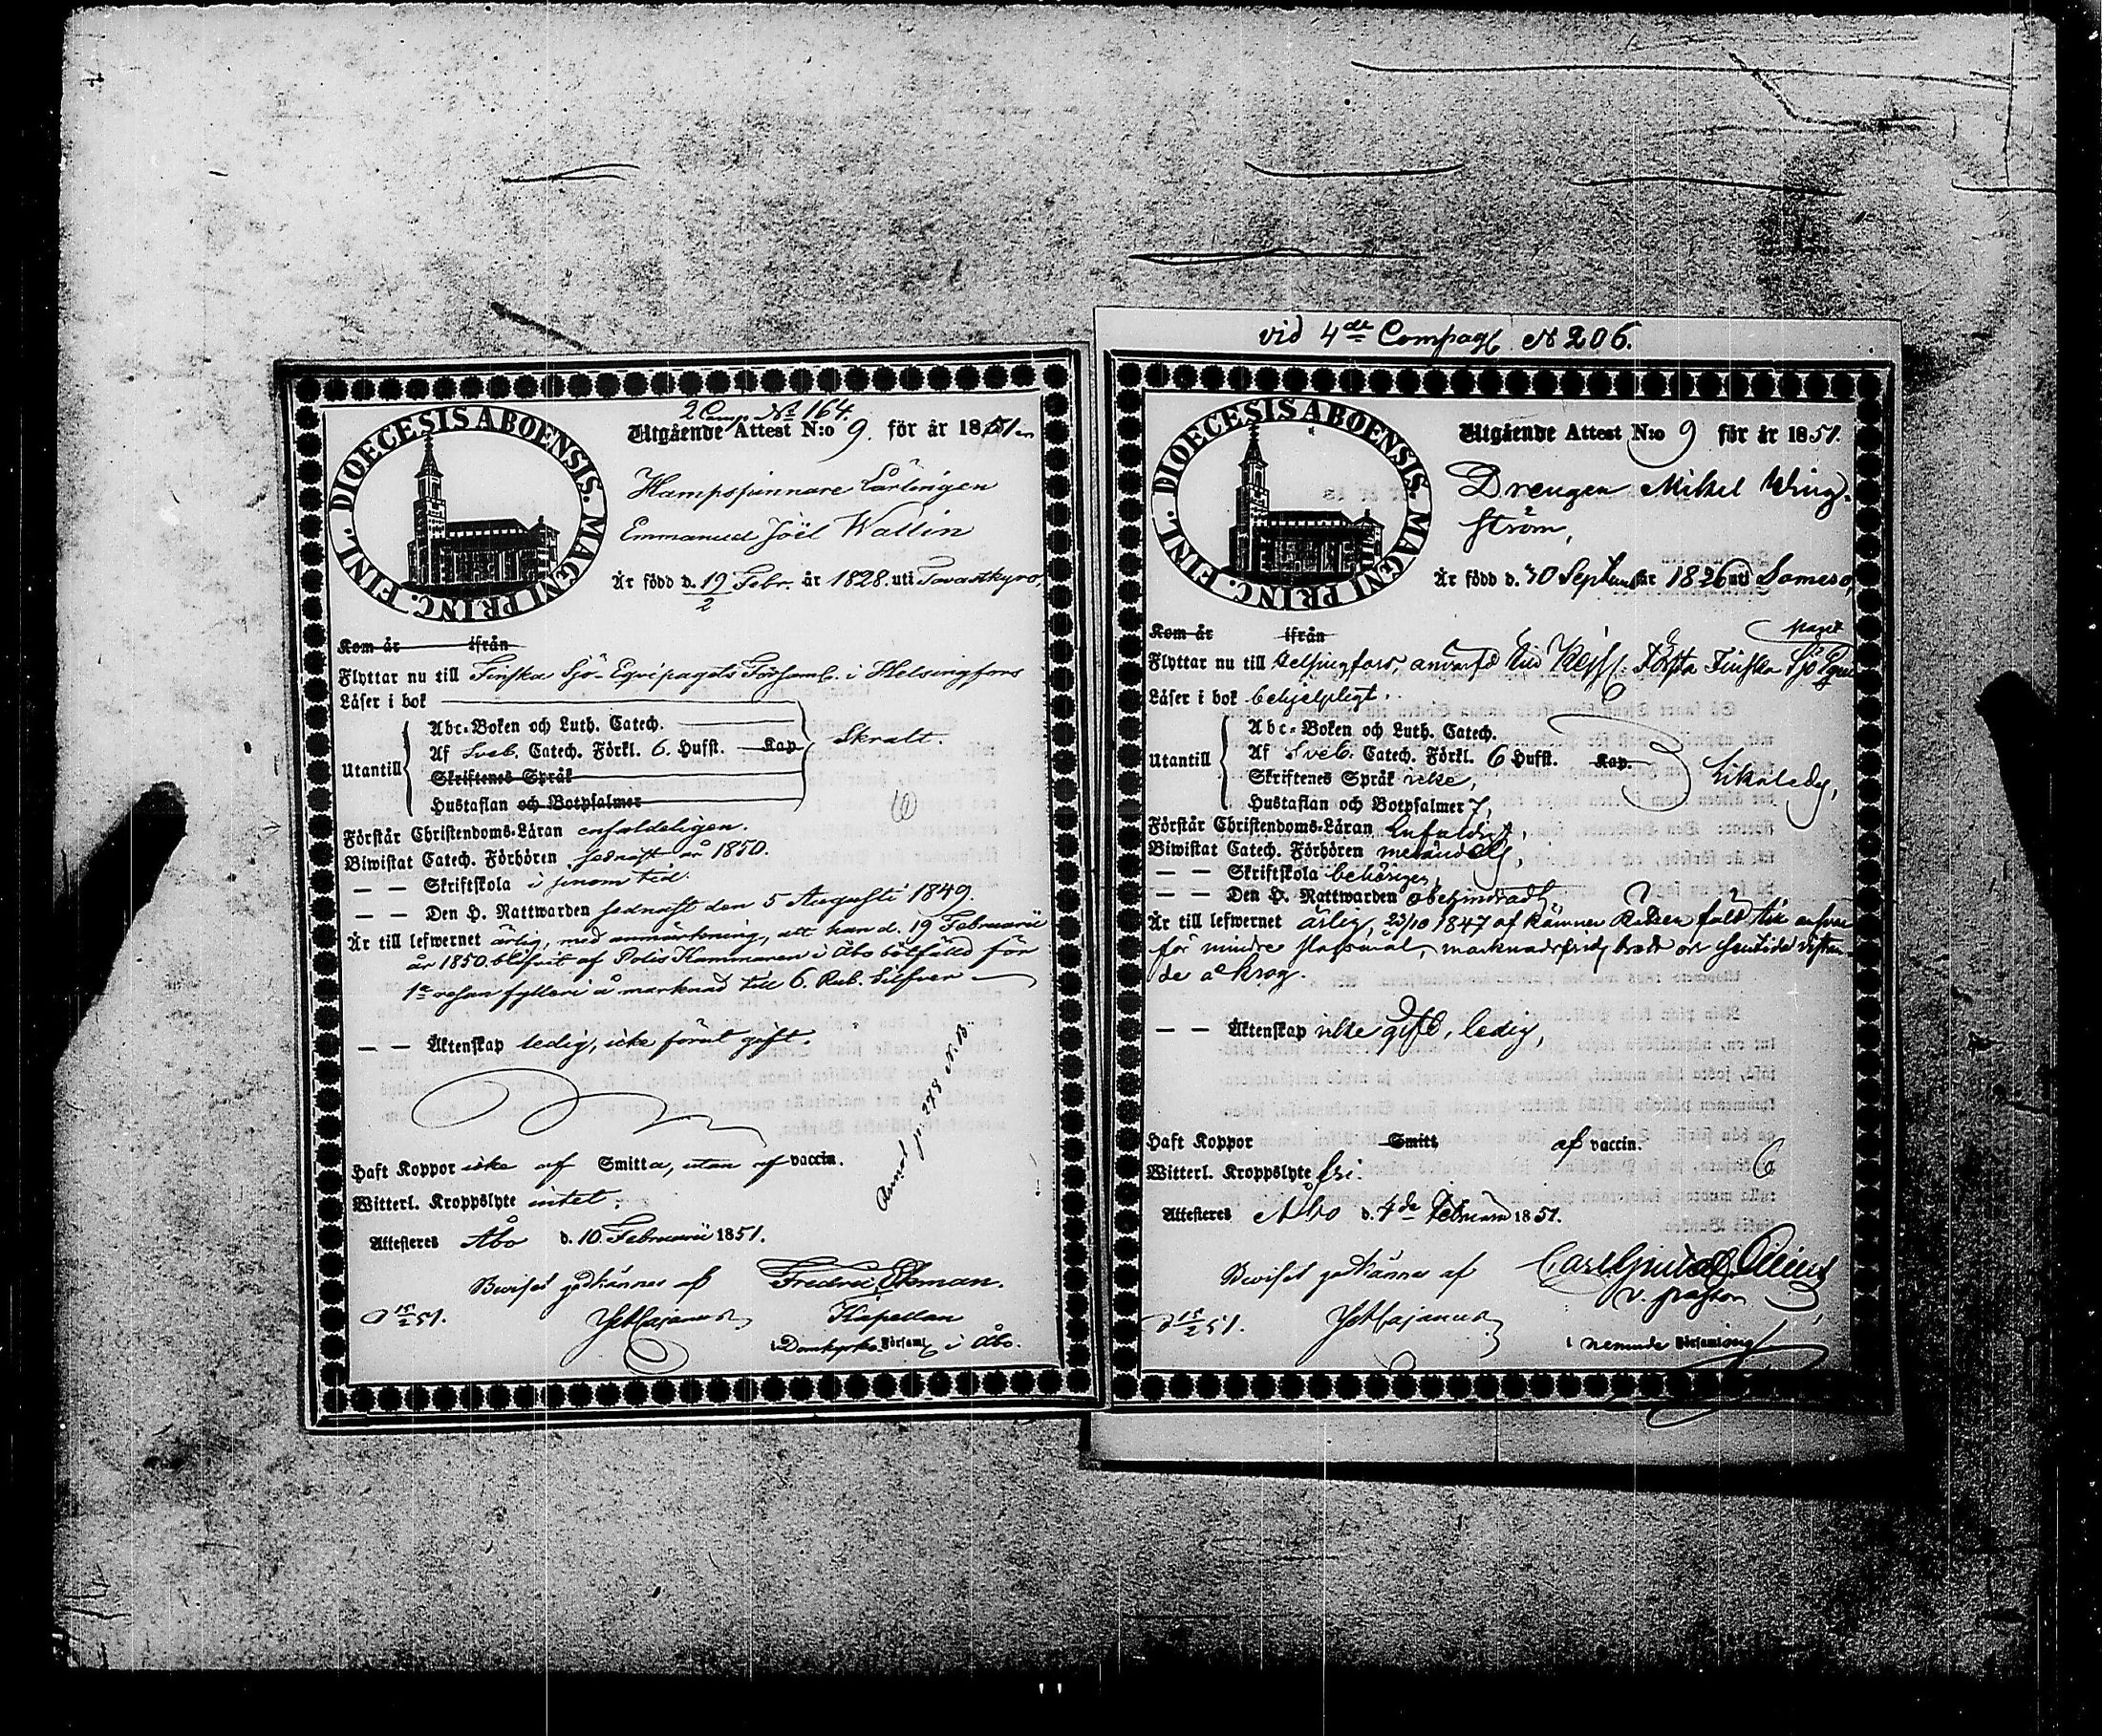 2 Comp N:o 164.
DIOECESIS ABOENSIS. MAGNI PRINC. FINL.
Utgående Attest N:o 9. för år 1851.
Hampspinnare Lärlingen
Emmanuel Joël Wallin
Är född d. 19 Febr. år 1828. uti Tavastkyro,
2
Kom år ifrån
Flyttar nu till Finska Sjö-Equipagets Församl. i Helsingfors
Läser i bok
Abc-Boken och Luth. Catech.
Utantill Af Sveb. Catech. Förkl. 6. Hufst. Kap Skralt.
Skriftenes Språk
Hustaflan och Botpsalmer
Förstår Christendoms-Läran enfaldeligen.
Biwistat Catech. Förhören sednast år 1850.
— — Skriftskola i sinom tid.
— — Den H. Nattwarden sednast den 5 Augusti 1849.
Är till lefwernet ärlig, med anmärkning, att han d. 19 Februarii
år 1850. blifvit af Polis Kammaren i Åbo bötfälld för
1:a resan fylleri å marknad till 6. Rub. Silfver
— — Äktenskap ledig, icke förut gift.
Haft Koppor icke af Smitta, utan af vaccin.
Witterl. Kroppslyte intet.
p. 278 N. 13
Attesteres Åbo d. 10. Februarii 1851.
Beviset godkännes af Fredric Ekman.
d 15/2 51. Cajanus Kapellan
i Domkyrko Församl i Åbo.
vid 4de Compag N 206.
DIOECESIS ABOENSIS. MAGNI PRINC. FINL.
Utgående Attest N:o 9 för år 1851.
Drengen Mikel Wing-
ström,
Är född d. 30 September 1826 uti Somero,
Kom år ifrån
Flyttar nu till Helsingfors, Första Finska Sjö Equi
paget
Läser i bok behjelpligt.
Abc-Boken och Luth. Catech.
Utantill Af Sveb. Catech. Förkl. 6 Hufst. Kap.
Skriftenes Språk icke,
Hustaflan och Botpsalmer 7,
Förstår Christendoms-Läran Enfaldigt,
Biwistat Catech. Förhören
— — Skriftskola behörigen,
— — Den H. Nattwarden obehindradt,
Är till lefwernet ärlig, 23/10 1847 af Kämner Rätten
för mindre slagsmål, marknadsfrids brott
de å krog.
— — Äktenskap icke gift, ledig,
Haft Koppor Smitt af vaccin.
Witterl. Kroppslyte fri.
Attesteres Åbo d. 4de Februarii 1851.
Beviset godkännes af
d 15/2 51. Cajanus v. pastor
i Nemnde Församling